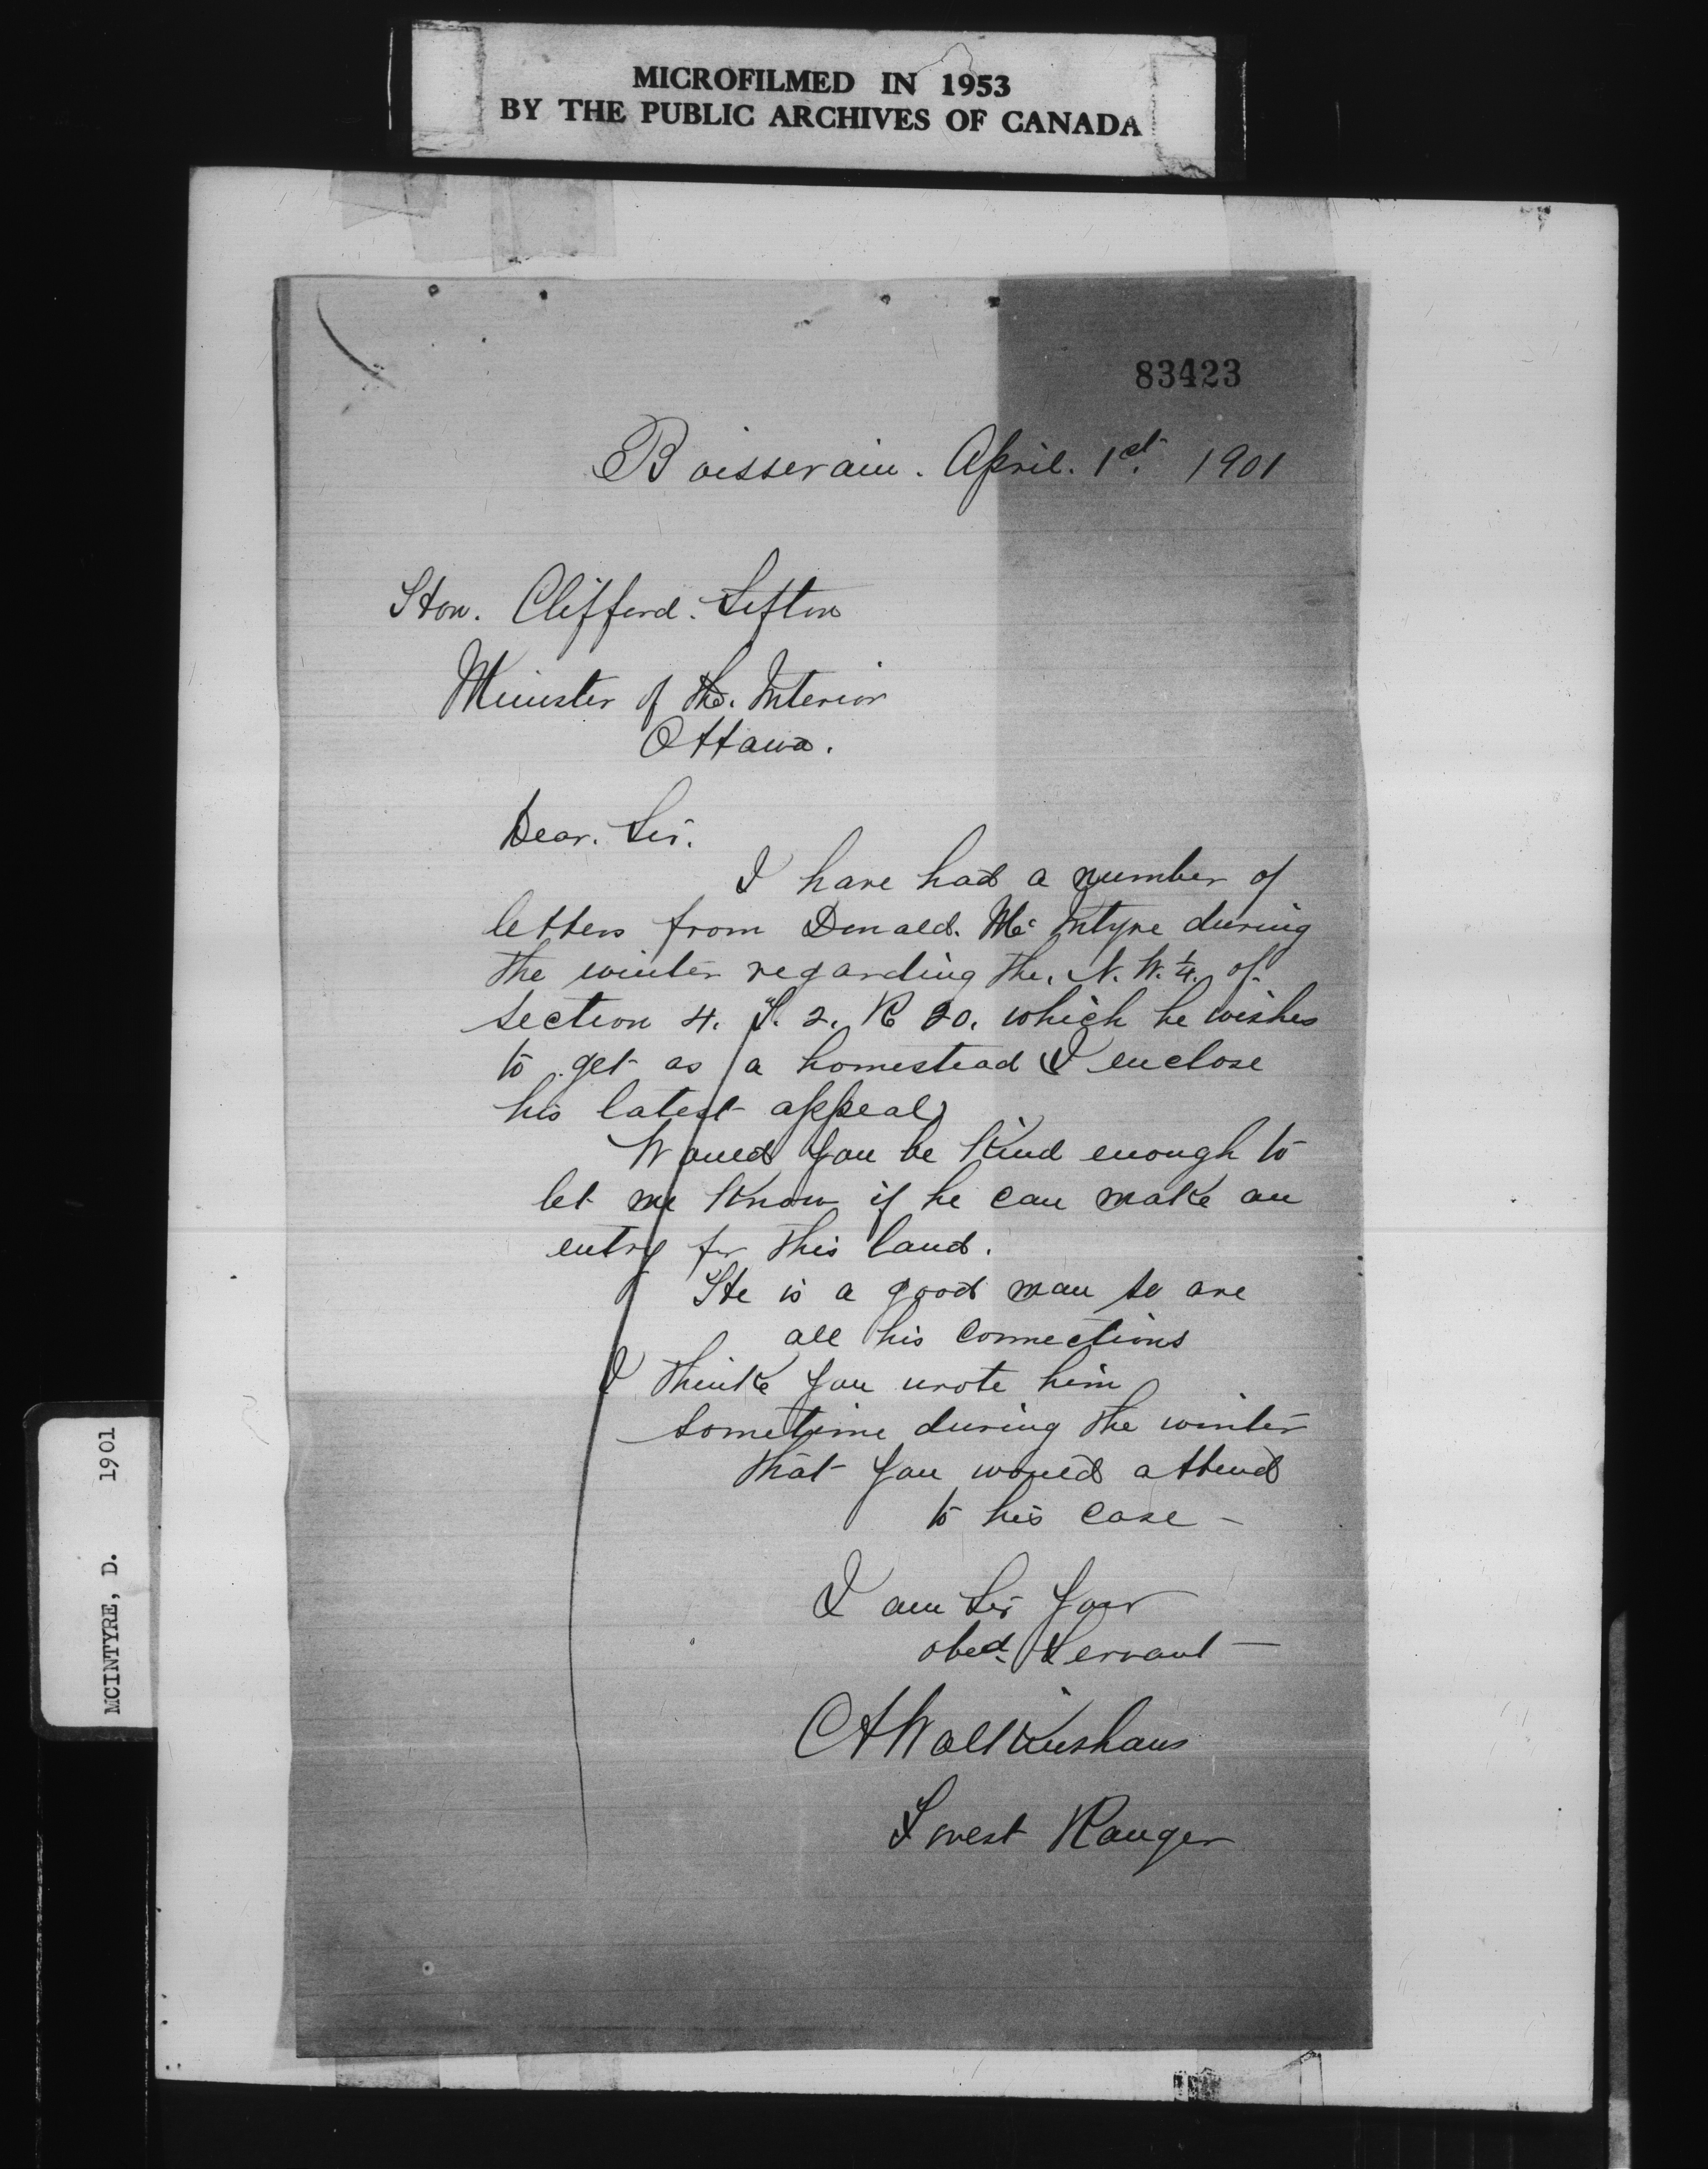 MICROFILMED IN 1953
BY THE PUBLIC ARCHIVES OF CANADA
83423
Boissevain. April. 1st. 1901
Hon. Clifford. Sifton
Minister of the. Interior
Ottawa.
Dear. Sir.
I have had a number of
letters from Donald. Mc Intyre during
the winter regarding the. N. W. 1/4. of
Section 4. T. 2. R 20. which he wishes
to get as a homestead (I enclose
his latest appeal)
Would you be kind enough to
let me know if he can make an
entry for this land.
He is a good man so are
all his connections
I think you wrote him
sometime during the winter
that you would attend
to his case -
I am Sir Your
obed. Servant -
C A Walkinshaw
Forest Ranger
MCINTYRE, D. 1901